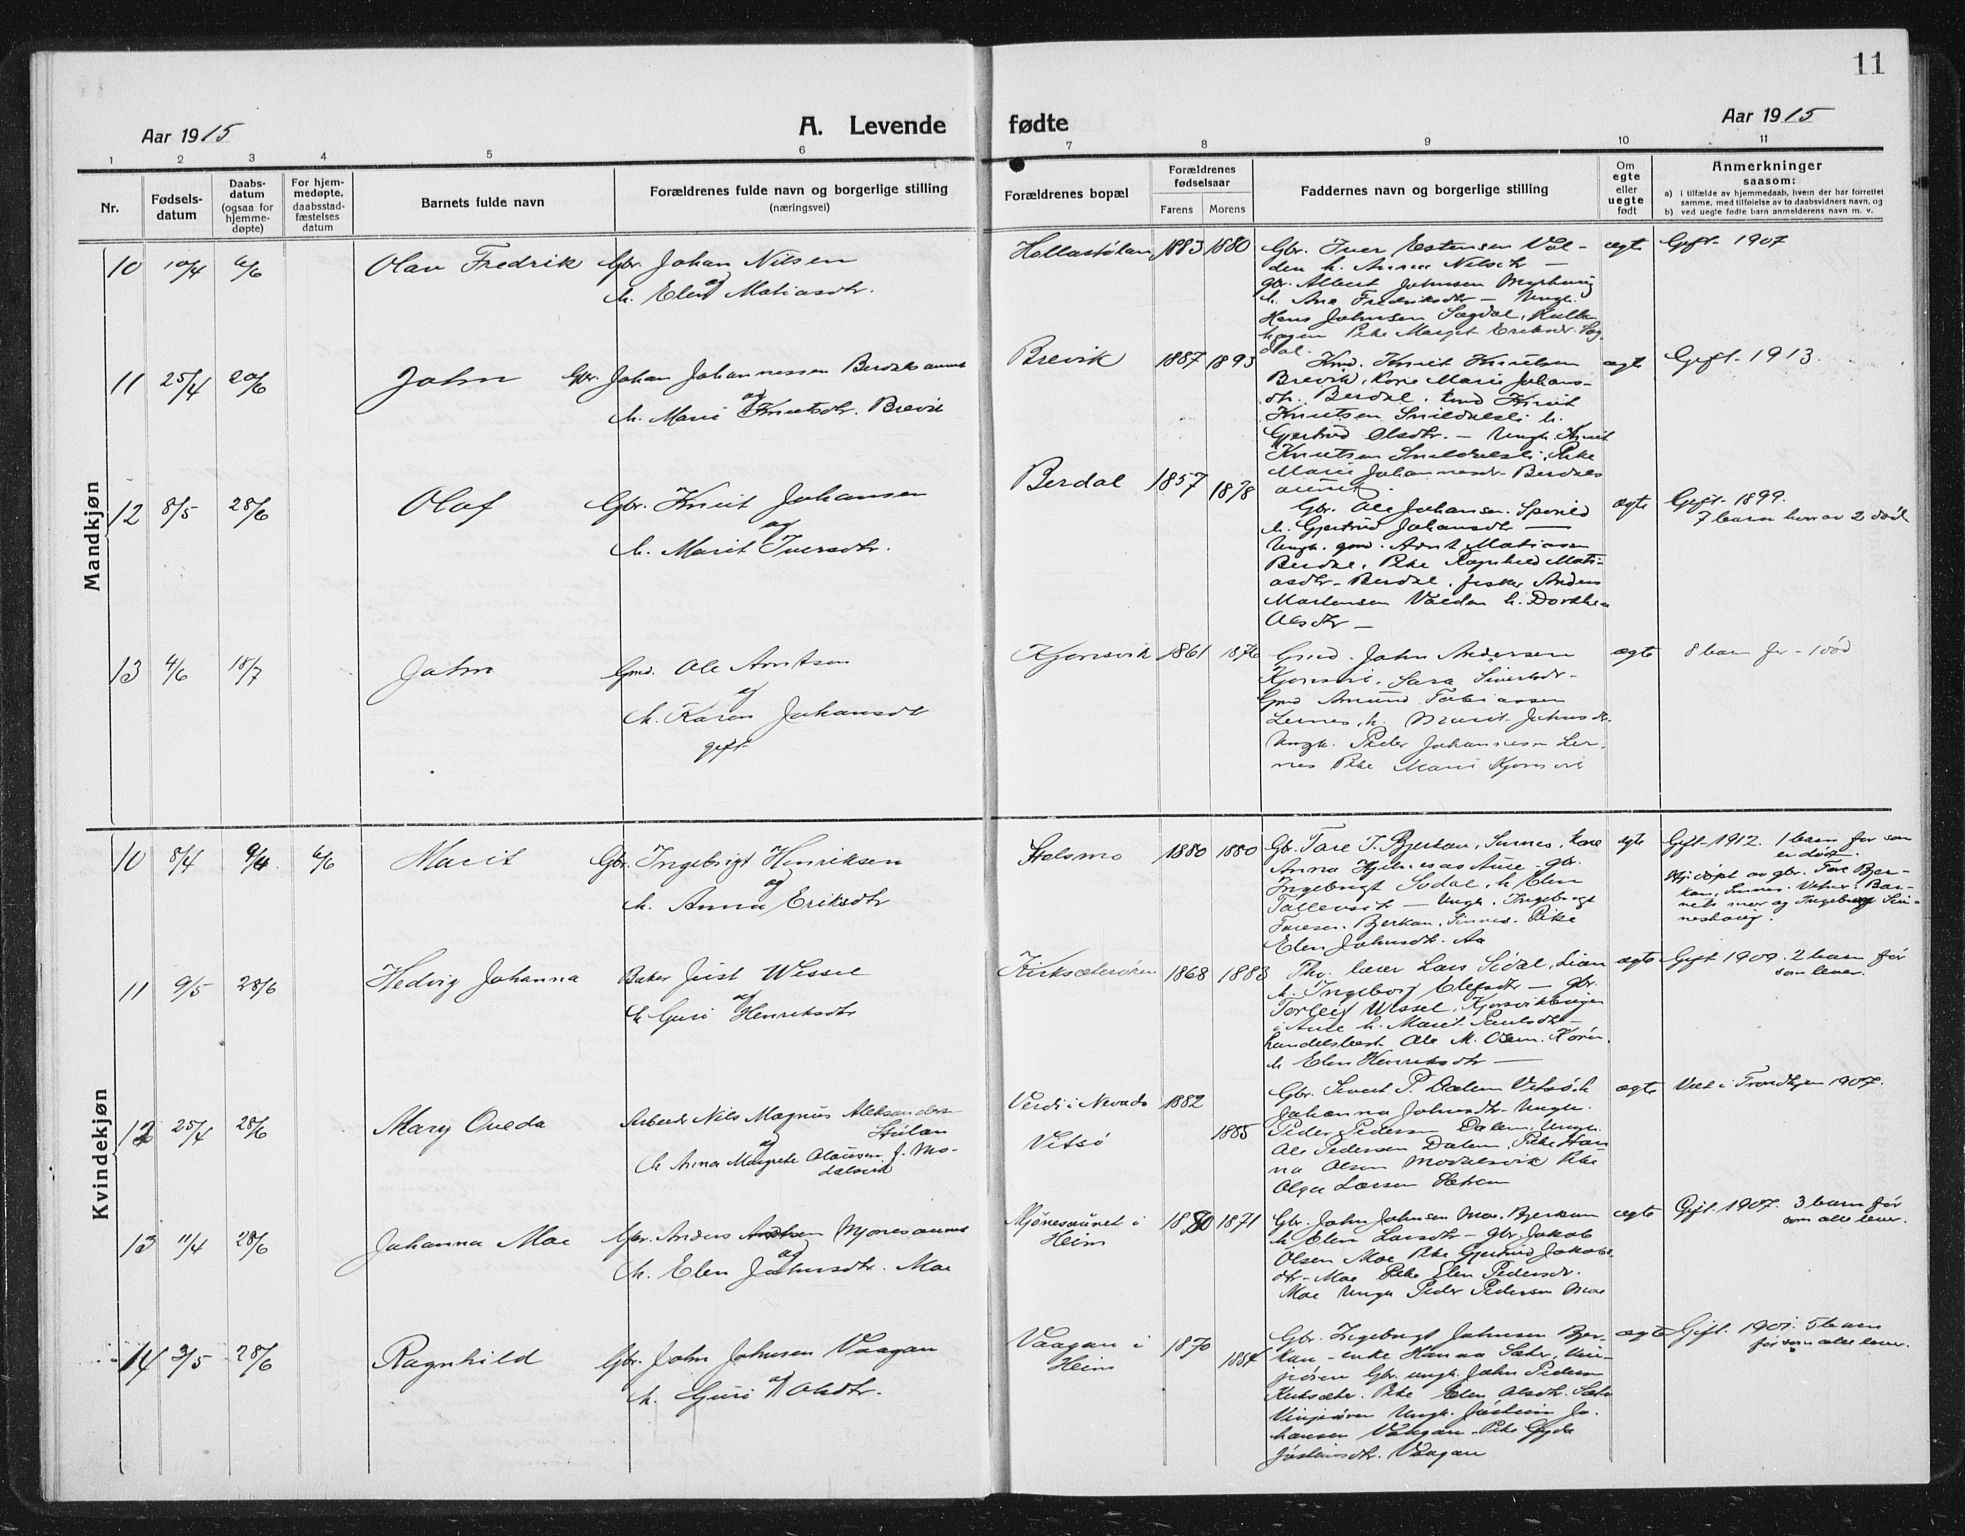 11
Aar 1915
A. Levende
fødte
Aar 1915
1 2 3 4 5 6 7 8 9 10 11
Nr.
Fødsels-
datum
Daabs-
datum
(ogsaa for
hjemme-
døpte)
For hjem-
medøpte,
daabsstad-
fæstelses
datum
Barnets fulde navn
Forældrenes fulde navn og borgerlige stilling
(næringsvei)
Forældrenes bopæl
Forældrenes
fødselsaar
Farens Morens
Faddernes navn og borgerlige stilling
Om
egte
eller
uegte
født
Anmerkninger
saasom:
a) i tilfælde av hjemmedaab, hvem der har forrettet
samme, med tilføielse av to daabsvidners navn, og
b) ved uegte fødte barn anmelderens navn m. v.
Mandkjøn
10 10/4 6/6 Olav Fredrik Gbr. Johan Nilsen
og
h. Elen Matiasdtr.
Hollastølan 1883 1880
Gbr. Iver Estensen Vol-
den h. Anna Nilsdtr —
gbr. Albert Johnsen
h. Ane Fredriksdtr — Ungk.
Hans Johnsen Sagdal,
Pike Marget Eriksdr. Sag
dal.
ægte Gift 1907
11 25/4 20/6 John Gbr. Johan Johannessen Berdalsaunet
og
h. Marie Knutsdtr. Brevik
Brevik 1887 1893
Knud Knutsen
Brevik, Kone Marie Johans-
dtr. Berdal,
Knutsen Snildalsli h.
Gjertrud Olsdtr. — Ungk. Knut
Knutsen Snildalsli, Pike
Marie Johannesdr. Berdals
aunet.
ægte Gift 1913.
12 8/5 28/6 Olaf Gbr. Knut Johansen
og
h. Marit Iversdtr.
Berdal 1857 1878
Gbr. Ole Johansen
h. Gjertrud Johansdtr —
Ungk. gmd. Arnt Matiassen
Berdal, Pike Ragnhild Mati-
asdtr. Berdal, fisker Anders
Martensen Valden h. Dorthea
Olsdtr —
ægte Gift 1899.
7 barn hvorav 2 død
13 4/6 18/7 John Gmd. Ole Arntsen
og
h. Karen Johansdtr
gift
Kjørsvik 1861 1876
Gmd. John Andersen
Kjørsvik, Sara Sivertsdr —
Gmd Amund Tobiassen
Lernes, h. Marit Johnsdr.
Ungk. Peder Johannesen Ler-
nes Pike Marie Kjørsvik
ægte 8 barn før — 1 død
Kvindekjøn
10 8/4 9/4 6/6 Marit Gbr. Ingebrigt Henriksen
og
h. Anna Eriksdtr
Stolsmo 1880 1880
Gbr. Tore T. Bjerkan, Sinnes, Kone
Anna Aune gbr.
Ingebrigt Sødal, h. Elen
Tollevsdtr — Ungk. Ingebrigt
Toresen Bjerkan, Sinnes. Pike
Elen Johnsdtr. Aa
ægte Gift 1912. 1 barn før som
er død.
Hj. døpt av gbr. Tore Bjer-
kan, Sinnes. Vidner: Bar-
nets mor og Ingeborg Sin-
neshaug.
11 9/5 28/6 Hedvig Johanna Baker Just Wessel
og
h Guri Henriksdtr
Kirksæterøren 1868 1883
Lærer Lars Sødal, Lian
h. Ingeborg Olefsdtr — gbr.
Torleif Wessel, Kjørsvikbugen
i Aure h. Marit Paulsdtr —
handelsbest. Ole M. Øien, Kören.
h Elen Henriksdtr —
ægte Gift 1909. 2 barn før
som lever.
12 25/4 28/6 Mary Oveda Arbeider Nils Magnus Aleksandersen
Stølan
og
h Anna Margrete Olausen f. Mo-
dalsvik
Verdi i Nevada
Vitsö
1882
1885
Gbr. Sivert P. Dalem Vitsø h
Johanna Johnsdtr. Ungk.
Peder Pedersen Dalem, Ungk.
Ole Pedersen Dalem, Pike Han-
na Olsen Modalsvik Pike
Olga Larsen
ægte Viet i Trondhjem 1907.
13 11/4 28/6 Johanna Moe Gbr. Anders Arntsen Mjønesaunet
og
h. Elen Johnsdtr. Moe
Mjønesaunet i
Heim
1880 1871
Gbr. John Johnsen Moe, Bjerkan
h Elen Larsdtr — Gbr. Jakob
Olsen Moe Pike Gjertrud Jakobs-
dtr. Moe Pike Elen Pedersdr.
Moe Ungk Peder Pedersen Moe
ægte Gift. 1907. 3 barn før
som alle lever.
14 3/5 28/6 Ragnhild Gbr. John Johnsen Vaagan
og
h. Guri Olsdtr.
Vaagan i
Heim
1870
1884
Gbr. Ingebrigt Johnsen Bjer-
kan — enke Hanna Sæter, Vin-
jeören Gbr. ungk. John Pedersen
Kirksæter. Pike Elen Olsdtr. Sæter
Vinjeören Ungk. Jöstein Jo-
hansen Vaagan — Pike Gyda
Jösteinsdtr. Vaagan
ægte Gift. 5 barn
før som alle lever.